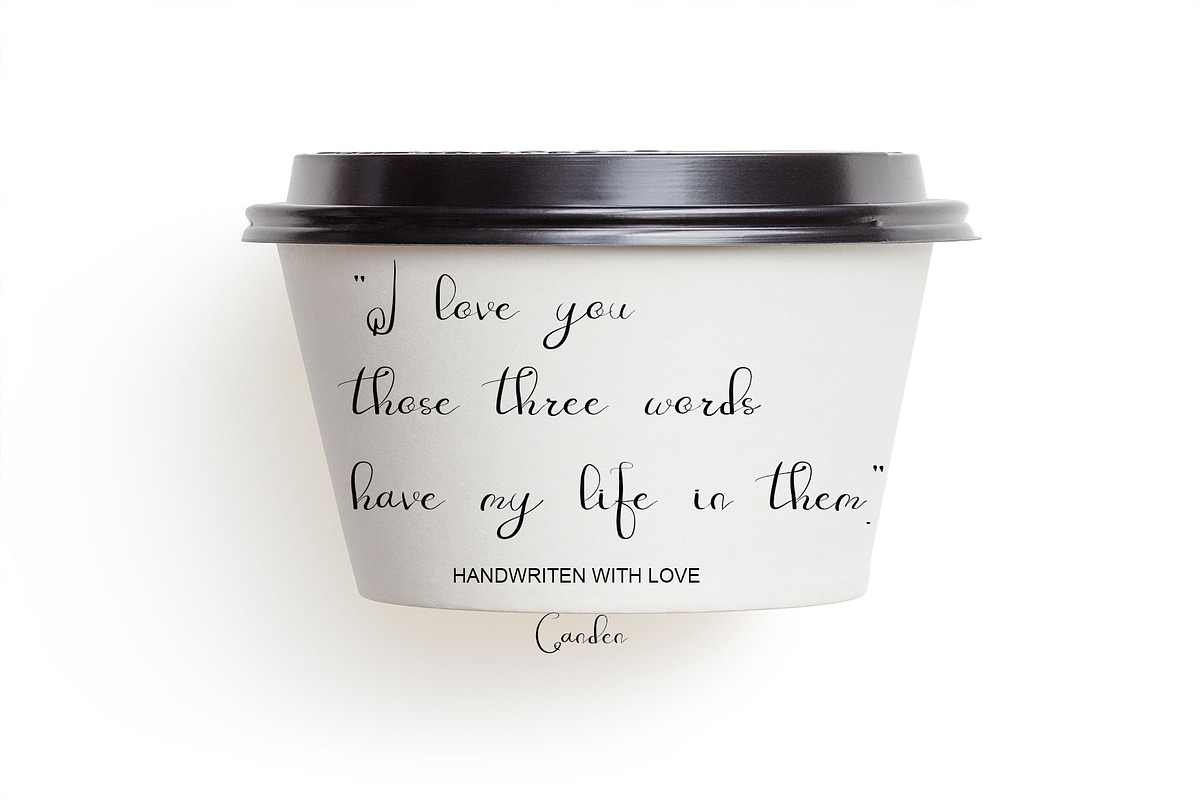 "I love you
those three words
have my life in them."
HANDWRITEN WITH LOVE
Canden